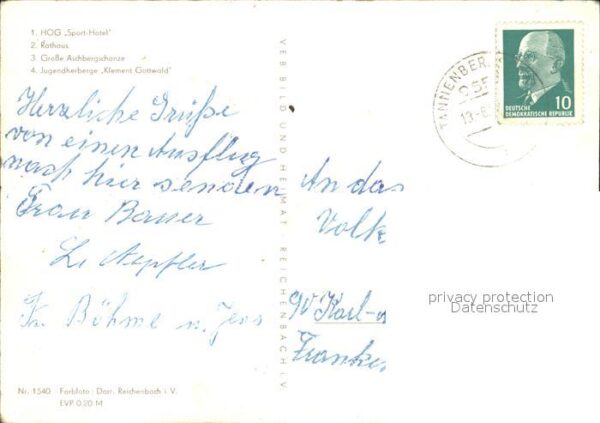 1. HOG „Sport-Hotel"
2. Rathaus
3. Große Aschbergschanze
4. Jugendherberge „Klement Gottwald"
Herzliche Grüße
von einen Ausflug
nach hier senden
Frau Bauer
L. Aepfler
Fr. Böhme u. Jens
Nr. 1540 Farbfoto: Darr, Reichenbach i. V.
EVP 0.20 M
VEB BILD UND HEIMAT REICHENBACH i. V.
TANNENBER
13-6
10
DEUTSCHE
DEMOKRATISCHE REPUBLIK
An das
Volk
GV Karl-
Franke
privacy protection
Datenschutz